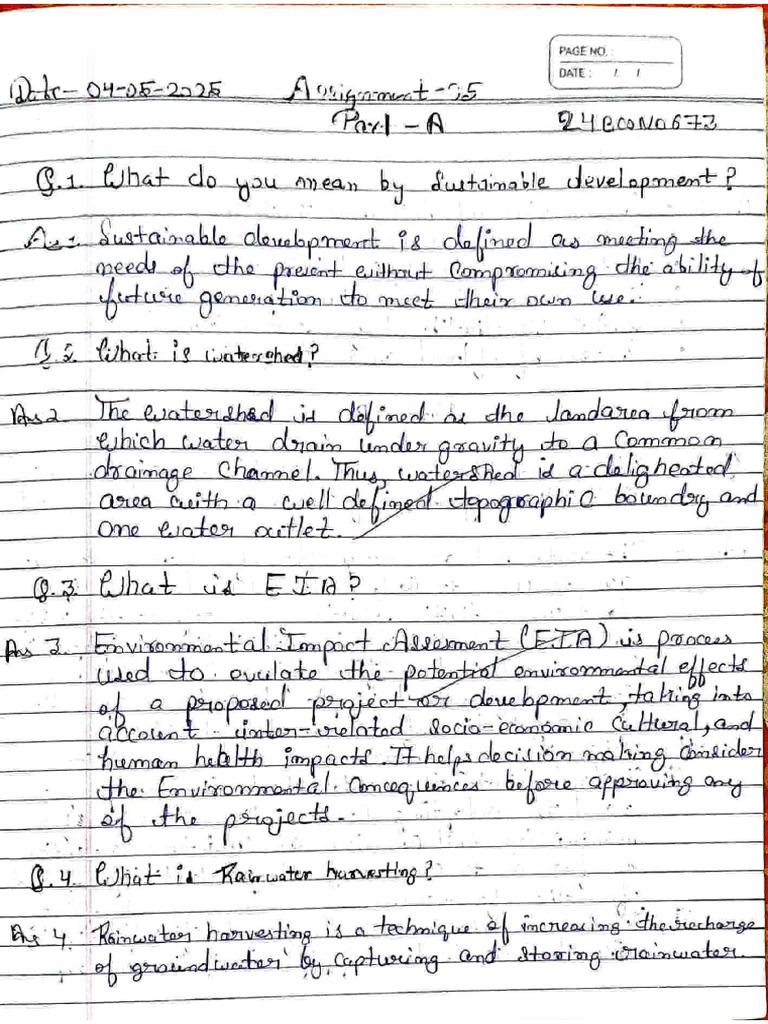 PAGE NO. :
DATE : / /
Date- 04-05-2025 Assignment-05
Part - A 24BCON0673
Q.1. What do you mean by Sustainable development?
Ans 1. Sustainable development is defined as meeting the
needs of the present without compromising the ability of
future generation to meet their own use.
Q.2. What is watershed?
Ans 2. The watershed is defined as the landarea from
which water drain under gravity to a Common
drainage Channel. Thus, watershed is a deligheated
area with a well defined topographic boundry and
one water outlet.
Q.3. What is EIA?
Ans 3. Environmental Impact Assesment (EIA) is process
used to evulate the potential environmental effects
of a proposed project or development, taking into
account inter-related socio-economic Cultural, and
human health impacts. It helps decision making Consider
the Environmental Consequences before approving any
of the projects.
Q.4. What is Rainwater harvesting?
Ans 4. Rainwater harvesting is a technique of increasing the recharge
of groundwater by capturing and storing rainwater.